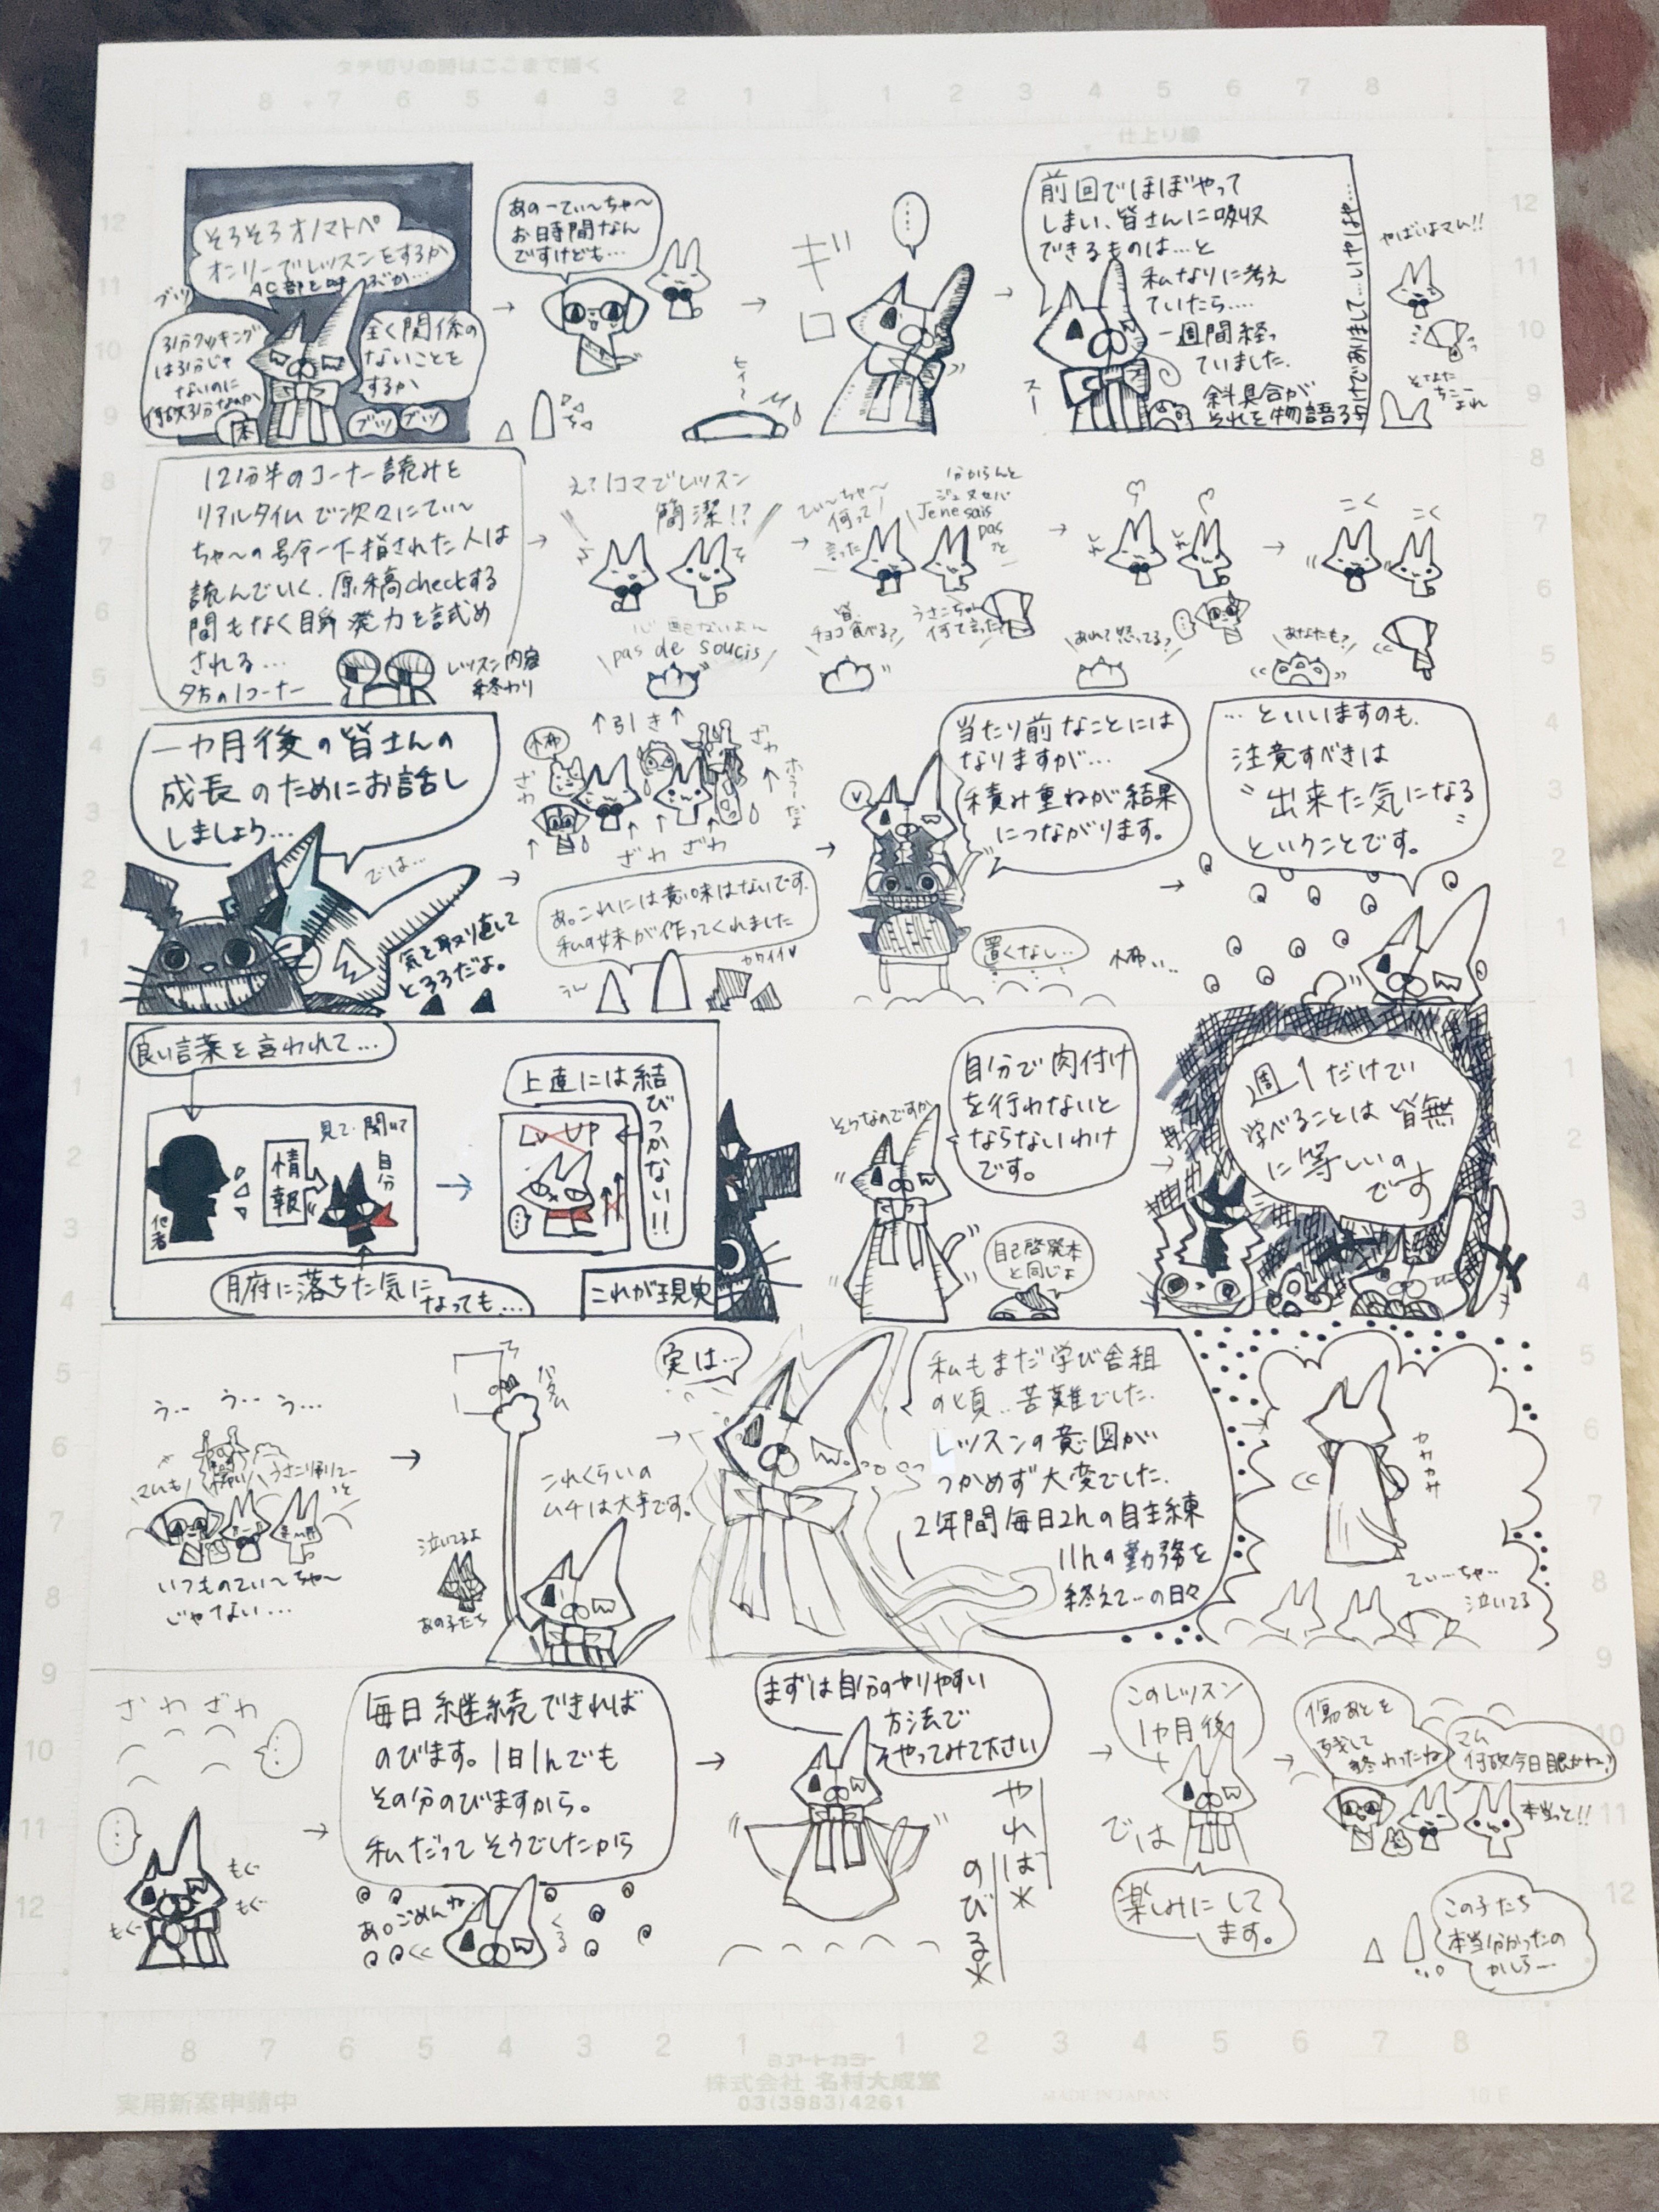 タチ切りの時はここまで描く
8 7 6 5 4 3 2 1 1 2 3 4 5 6 7 8
仕上り線
そろそろオノマトペ
オンリーでレッスンをするか
AC部と呼ぶか…
ブツ
3分クッキング
は3分じゃ
ないのに
何故3分なのか
全く関係の
ないことを
するか
困
ブツ
ブツ
→
あのーてぃ〜ちゃ〜
お時間なん
ですけども…
→
ヒイ〜
ギ
ロ
……
→
スー
前回でほぼやって
しまい、皆さんに吸収
できるものは…と
私なりに考え
ていたら…
一週間経っ
ていました。
斜具合が
それを物語る
わけでありまして…いやはや…
やばいよマム!!
12分半のコーナー読みを
リアルタイムで次々にてぃ〜
ちゃ〜の号令一下指された人は
読んでいく。原稿checkする
間もなく瞬発力を試め
される…
夕方の1コーナー
レッスン内容
終わり
→
え?1コマでレッスン
簡潔!?
心配ないよん
pas de soucis
→
てぃ〜ちゃ〜
何って
言った
分からんと
ジュヌセパ
Je ne sais
pas
っと
皆、
チョコ食べる?
うさこちゃん
何て言った?
→
あれ?怒ってる?
→
こく
こく
あなたも?
一カ月後の皆さんの
成長のためにお話し
しましょう…
では…
気を取り直して
ところだよ。
→
↑引き↑
怖
ざわ
ざわ
ざわ ざわ
ホラーだな
あ。これには意味はないです。
私の妹が作ってくれました
うん
カワイイ♥
→
当たり前なことには
なりますが…
積み重ねが結果
につながります。
置くなし…
怖い…
→
…といいますのも、
注意すべきは
〝出来た気になる〟
ということです。
良い言葉を言われて…
他者
情報
見て・聞いて
自分
腑に落ちた気に
なっても…
→
上達には結びつかない!!
LV UP
これが現実
そうなのですか
自分で肉付け
を行わないと
ならないわけ
です。
自己啓発本
と同じよ
→
週1だけでい
学べることは皆無
に等しいの
です
う… う… う…
マムも
怖い
いつものてぃ〜ちゃ〜
じゃない…
→
泣いてるよ
あの子たち
これくらいの
ムチは大事です。
→
実は…
私もまだ学び舎組
の頃…苦難でした。
レッスンの意図が
つかめず大変でした。
2年間毎日2hの自主練
11hの勤務を
終えて…の日々
カサカサ
てぃ…ちゃ…
泣いてる
ざわざわ
…
…
もぐ
もぐ
もぐ
→
毎日継続できれば
のびます。1日1hでも
その分のびますから。
私だってそうでしたから
あ。ごめんね。
くる
→
まずは自分のやりやすい
方法で
やってみて下さい
やれば※
のびる※
→
このレッスン
1カ月後
では
楽しみにして
ます。
→
傷あとを
残して
終わったね
マム
何故今日眼がね?
本当っと!!
この子たち
本当分かったの
かしら…
8 7 6 5 4 3 2 1 1 2 3 4 5 6 7 8
アートカラー
株式会社 名村大成堂
03(3983)4261
実用新案申請中
MADE IN JAPAN